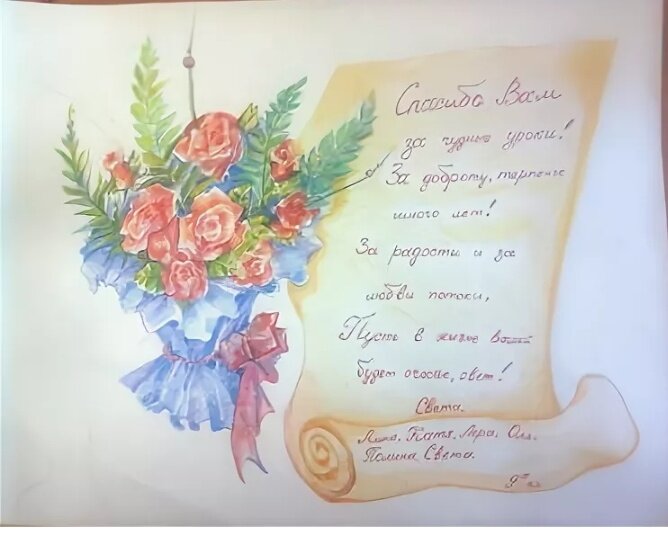 Спасибо Вам
за чудные уроки!
За доброту, терпенье
много лет!
За радости и за
любви потоки,
Пусть в жизни вашей
будет счастье, свет!
Света.
Катя, Лера, Оля,
Полина, Света.